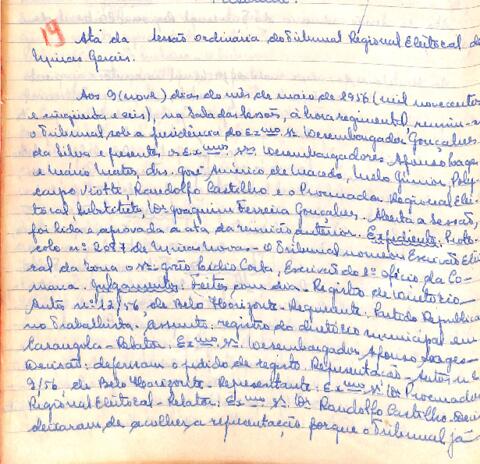 19
Ata da sessão ordinária do Tribunal Regional Eleitoral de
Minas Gerais.
Aos 9 (nove) dias do mês de maio de 1956 (mil novecentos
e cinqüenta e seis), na Sala das Sessões, à hora regimental, reuniu-se
o Tribunal sob a presidência do Exmo. Sr. Desembargador Gonçalves
da Silva e presentes os Exmos. Srs. Desembargadores Afonso Lages
e Mário Matos, drs. José Américo de Macedo, Melo Júnior, Poly-
carpo Viotti, Randolfo Castilho e o Procurador Regional Elei-
toral Substituto, Dr. Joaquim Ferreira Gonçalves. Aberta a sessão,
foi lida e aprovada a ata da reunião anterior. Expediente: Proto-
colo nº 2087 de Minas Novas - O Tribunal nomeou Escrivão Elei-
ral da zona o Sr. João Elídio Costa, Escrivão do 2º ofício da Co-
marca. Julgamentos: Feitos com dia - Registro de Diretório -
Autos nº 12/56, de Belo Horizonte - Requerente: Partido Republica-
no Trabalhista. Assunto: registro do diretório municipal em
Carangola - Relator: Exmo. Sr. Desembargador Afonso Lages -
Decisão: deferiram o pedido de registro. Representação - Autos nº
9/56, de Belo Horizonte - Representante: Exmo. Sr. Dr. Procurador
Regional Eleitoral - Relator: Exmo. Sr. Dr. Randolfo Castilho - Deci-
deixaram de acolher a representação porque o Tribunal já